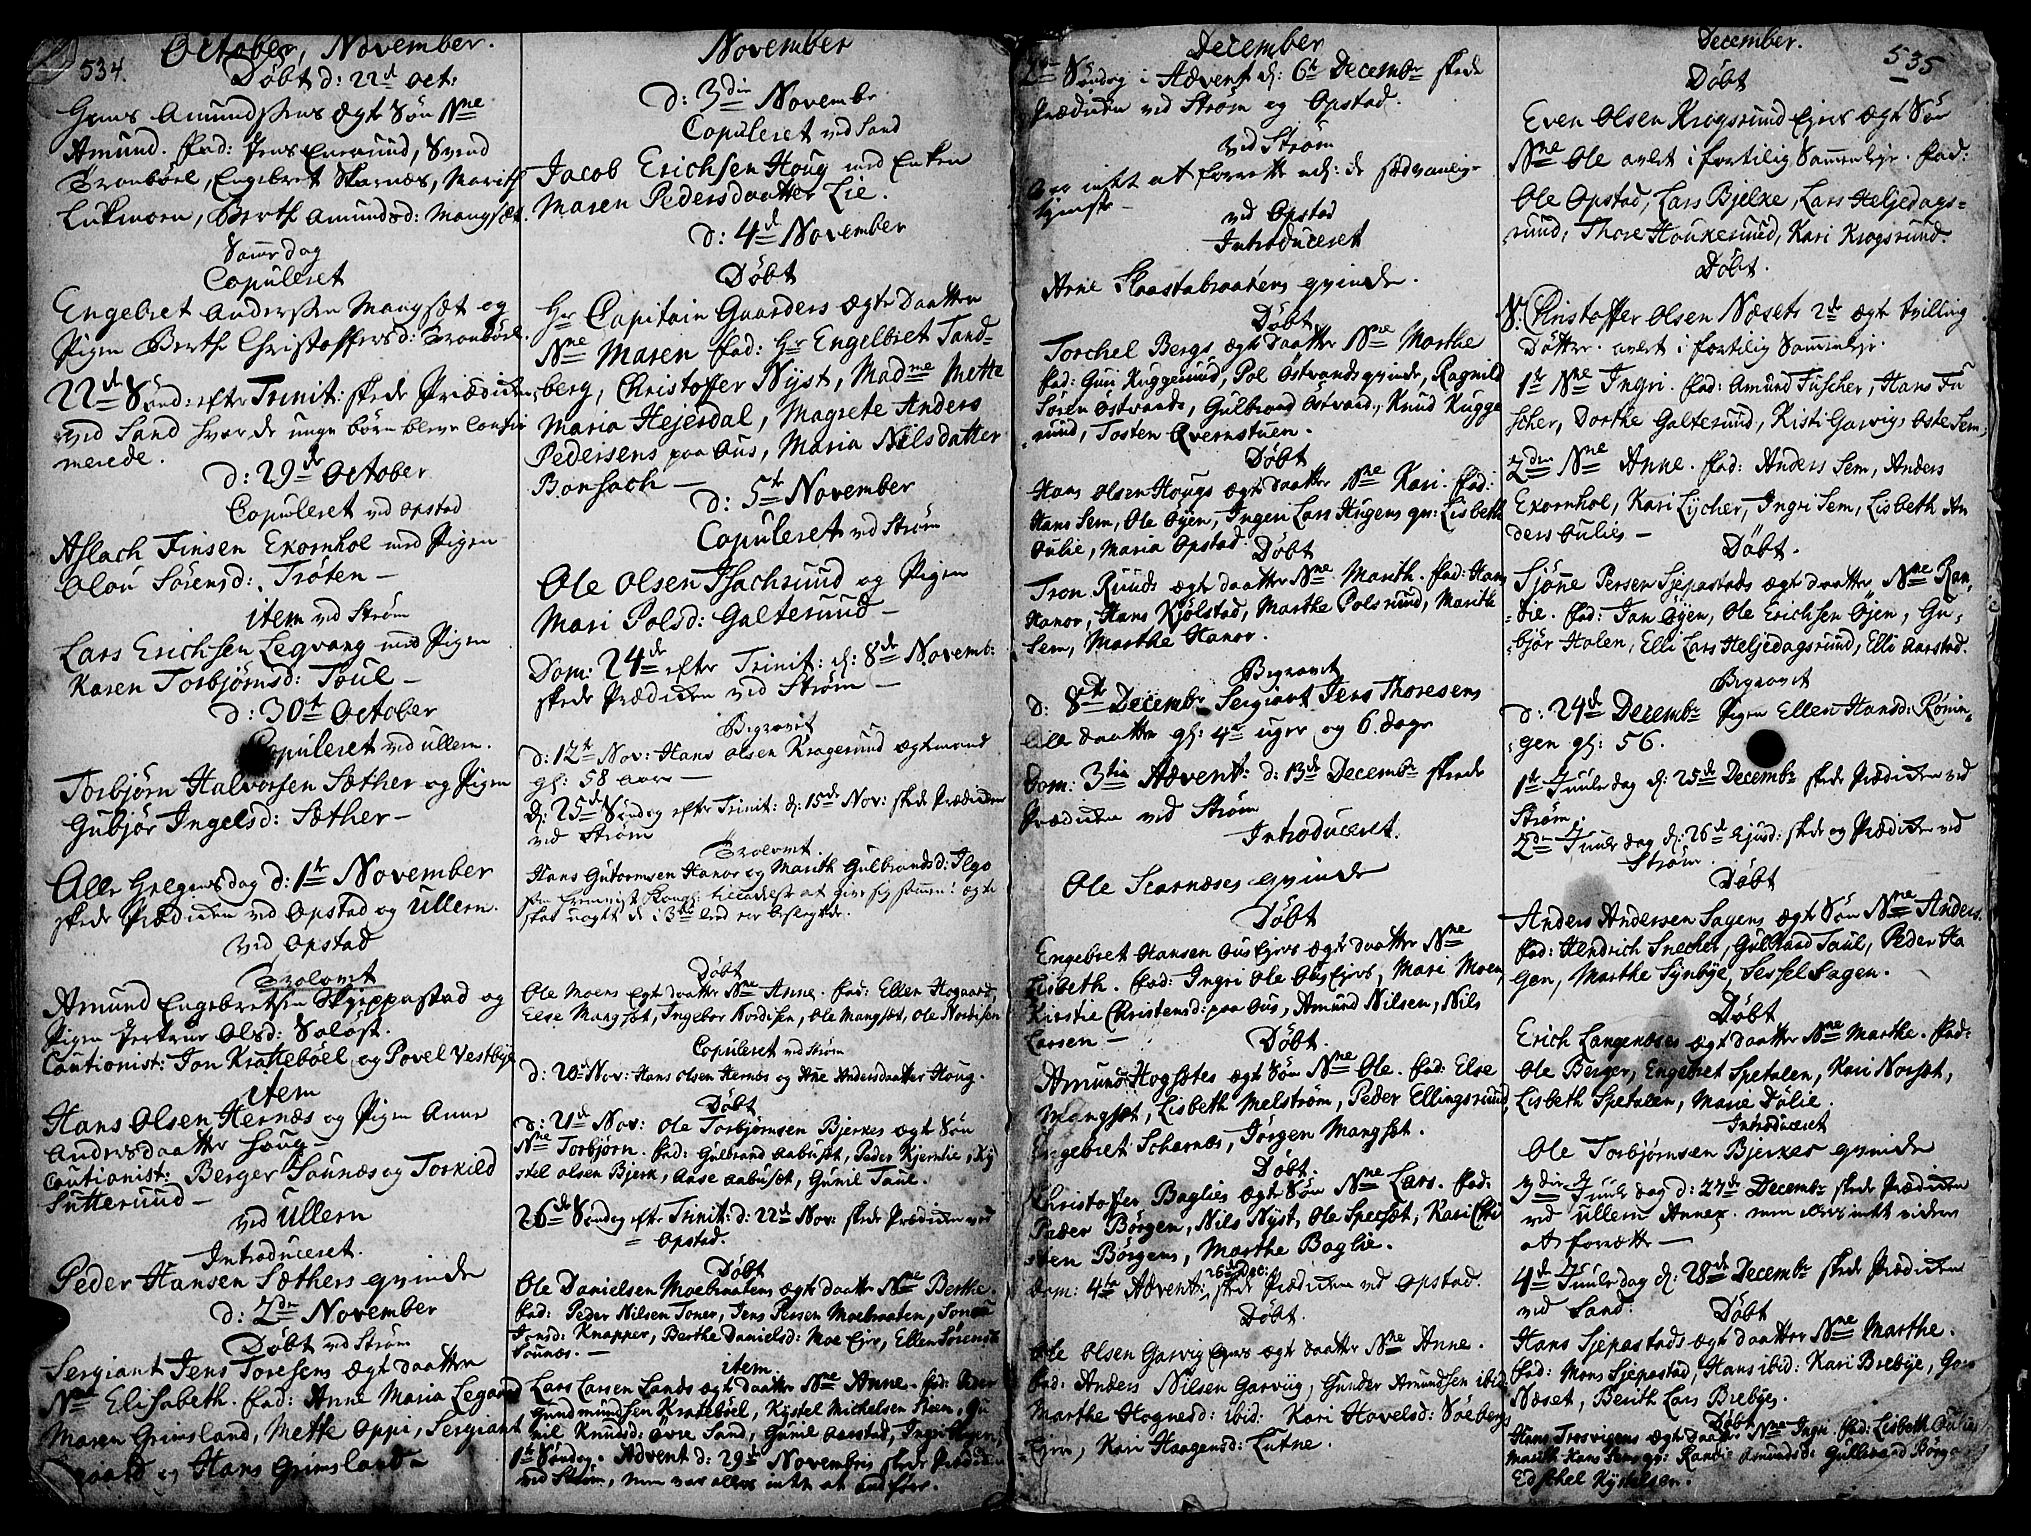 534.
October, November.
Døbt d: 22d Oct:
Hans Amundssens ægte Søn Nme
Amund. Fad: Jens Engerund, Svend
Tronbøel, Engebret Skarnæs, Marith
Lukmoen, Berth Amundsd: Mangset.
Samme dag
Copuleret
Engebret Anderssen Mangset og
Pigen Berth Christoffersd: Tronbøel.
22de Sønd: efter Trinit: skede Prædiken
ved Sand hvor de unge børn bleve confir
merede.
d: 29de October
Copuleret ved Opstad
Aslach Finsen Ekornhol med Pigen
Olou Sørensd: Trøten —
item ved Strøm
Lars Erichsen Legvang med Pigen
Karen Torbjørnsd: Toul —
d: 30te October
Copuleret ved Ullern.
Torbjörn Halvorsen Sæther og Pigen
Gubjør Ingelsd: Sæther —
Alle Helgens dag d: 1te November
skede Prædiken ved Opstad og Ullern.
ved Opstad
Trolovet
Amund Engebretsen Skyeppestad og
Pigen Pertrue Olsd: Saløst.
Cautionist: Jon Krattebøel og Povel Vestbye
item
Hans Olsen Hernæs og Pigen Anne
Andersdaatter Houg —
Cautionist: Berger Sounæs og Torkild
Sutterund —
ved Ullern
Introduceret.
Peder Hansen Sæthers qvinde
d: 2den November
Døbt ved Strøm
Sergiant Jens Toresens ægte daatter
Nme Elisabeth. Fad: Anne Maria Legaard
Maren Grimsland, Mette Oppi, Sergiant
og Hans Grimsland —
November
d: 3die Novembr
Copuleret ved Sand
Jacob Erichsen Houg med Enken
Maren Pedersdaatter Lie.
d: 4de November
Døbt
Hr Capitain Guarders ægte daatter
Nme Maren Fad: Hr Engelbret Tand-
berg, Christoffer Nyst, Madme Mette
Maria Hejerdal, Magrete Anders
Pedersens paa Ous, Maria Nilsdatter
Bonsach —
d: 5te November
Copuleret ved Strøm
Ole Olsen Isachrund og Pigen
Mari Polsd: Galterund —
Dom: 24de efter Trinit: d: 8de Novemb:
skede Prædiken ved Strøm —
Begravet
d: 12te Nov: Hans Olsen Kragerund ægtmand
gl: 58 aar —
D: 25de Søndag efter Trinit: d: 15de Nov: skede Prædiken
ved Strøm
Trolovet.
Hans Gutormsen Hanor og Marith Gulbrandsd: Ilgo
som formeist Kongl: tilladelse at give sig sammen i ægte
skab uagtet de i 3die leed ere beslegtede.
Døbt
Ole Moens ægte daatter Nme Anne. Fad: Ellen Hogaard,
Else Mangset, Ingebor Nordisen, Ole Mangset, Ole Nordisen
Copuleret ved Strøm
d: 20de Nov: Hans Olsen Hernæs og Ane Andersdaatter Houg.
Døbt
d: 21de Nov: Ole Torbjørnsen Bjerkes ægte Søn
Nme Torbjörn. Fad: Gulbrand Aabuset, Peder Kjernlie, Ky
stel Olsen Bjerk, Aase Aabuset, Gunil Taul.
26de Søndag efter Trinit: d: 22de Nov: skede Prædiken ved
Opstad.
Døbt
Ole Danielsen Moebraatens ægte daatter Nme Berthe.
Fad: Peder Nilsen Toner, Jens Persen Moebraaten,
Jonsd: Knapper, Berthe Danielsd: Moe Ejer, Ellen Sørens
Sounæs. —
item.
Lars Larsen Sands ægte daatter Nme Anne. Fad: Peder
Gundmundsen Krattebøel, Kystel Michelsen Steen, Gu
nil Knudsd: Øvre Sand, Gunil Aarstad, Ingri
1te Søndag. Advent d: 29de Novembris skede Prædiken
ved Strøm, men var allers intet at udføre.
December
2den Søndag i Advent d: 6te Decembr skede
Prædiken ved Strøm og Opstad.
ved Strøm
Var intet at forrette uden de sædvanlige
tjenester
ved Opstad
Introduceret
Arne Haastabraatens qvinde.
Døbt
Torchel Bergs ægte daatter Nme Marthe
Fad: Guri Kuggerud, Pol Östvands qvinde, Ragnild
Søren Østvands, Gulbrand Østvand, Knud Kugge
rund, Tosten Qvernstuen.
Døbt
Hans Olsen Hougs ægte daatter Nme Kari. Fad:
Hans Sem, Ole Öyen, Ingen Lars Hugens qv: Lisbeth
Oulie, Maria Opstad.
Døbt
Tron Ruuds ægte daatter Nme Marith. Fad: Hans
Hanor, Hans Kjølstad, Marthe Polsrund, Marithe
Sem, Marthe Hanor.
Begravet
d: 8de Decembr Sergiant Jens Thoresens
lille daatter gl: 4re uger og 6 dage
Dom: 3tia Advent: d: 13de Decembr skede
Prædiken ved Strøm
Introduceret.
Ole Scarnæses qvinde
Døbt
Engebret Hansen Ous Ejers ægte daatter Nme
Lisbeth. Fad: Ingri Ole Ous Ejers, Mari Moen,
Kirstie Christensd: paa Ous, Amund Nilsen, Nils
Larsen —
Døbt.
Amund Hogsetes ægte Søn Nme Ole. Fad: Else
Mangset, Lisbeth Melstrøm, Peder Ellingsrund,
Engebret Scharnæs, Jörgen Mangset.
Døbt.
Christoffer Baglies ægte Søn Nme Lars. Fad:
Peder Börgen, Nils Nyst, Ole Specset, Kari Chri
sten Börgens, Marthe Baglie.
Dom: 4ta Advent: 20de Dec: skede Prædiken ved Opstad.
Døbt.
Ole Olsen Garvig Ejers ægte daatter Nme Anne.
Fad: Anders Nilsen Garviig, Gunder Amundsen ibid:
Marthe Hognesd: ibid: Kari Havelsd: Søeberg
Ejer, Kari Haagensd: Lutne.
December.
535
Døbt
Even Olsen Krogsrund Ejers ægte Søn
Nme Ole avlet i fortilig Sammenleje. Fad:
Ole Opstad, Lars Bjelke, Lars Heljedags-
rund, Thore Houkerund, Kari Krogsrund.
Døbt.
N: Christoffer Olsen Næsets 2de ægte tvilling
Døttre. avlet i fortilig Sammenleje.
1te Nme Ingri. Fad: Amund Fuscher, Hans Fu
scher, Dorthe Galterund, Kisti Garvig, Oste Sem,
2den Nme Anne. Fad: Anders Sem, Anders
Ekornhol, Kari Lycher, Ingri Sem, Lisbeth An
ders Oulies —
Døbt.
Sjøne Persen Sjepastads ægte daatter Nme Ran-
die. Fad: Jan Öyen, Ole Erichsen Öjen, Gu-
bjør Holen, Elli Lars Heljedagsrund, Elli Aarstad.
Begravet
d: 24de Decembr Pigen Ellen Hansd: Rønin-
gen gl: 56.
1te Juule dag d: 25de Decembr skede Prædiken ved
Strøm.
2den Juule dag d: 26de Ejusd: skede og Prædiken ved
Strøm.
Døbt
Anders Andersen Sagens ægte Søn Nme Anders.
Fad: Hendrich Snecher, Gulbrand Taul, Peder Ha
gen, Marthe Synbye, Sessel Sagen.
Døbt
Erich Langenæses ægte daatter Nme Marthe. Fad:
Ole Berger, Engebret Spetalen, Kari Norset,
Lisbeth Spetalen, Marie Dalie.
Introduceret
Ole Torbjørnsen Bjerkes qvinde
3die Juule dag d: 27de Decembr skede Prædiken
ved Ullern Annex. men var intet videre
at forrette —
4de Juule dag d: 28de Decembr skede Prædiken
ved Sand.
Døbt
Hans Sjepastads ægte daatter Nme Marthe.
Fad: Mons Sjepastad, Hans ibid: Kari Brebye,
Næset, Berith Lars Brebyes.
Døbt
Hans Trosvigens ægte daatter Nme Ingri. Fad: Lisbeth Oulies
Marith Hans Sems qv: Randie Amundsd: Gulbrand Börgen
Edschel Kystelsen.